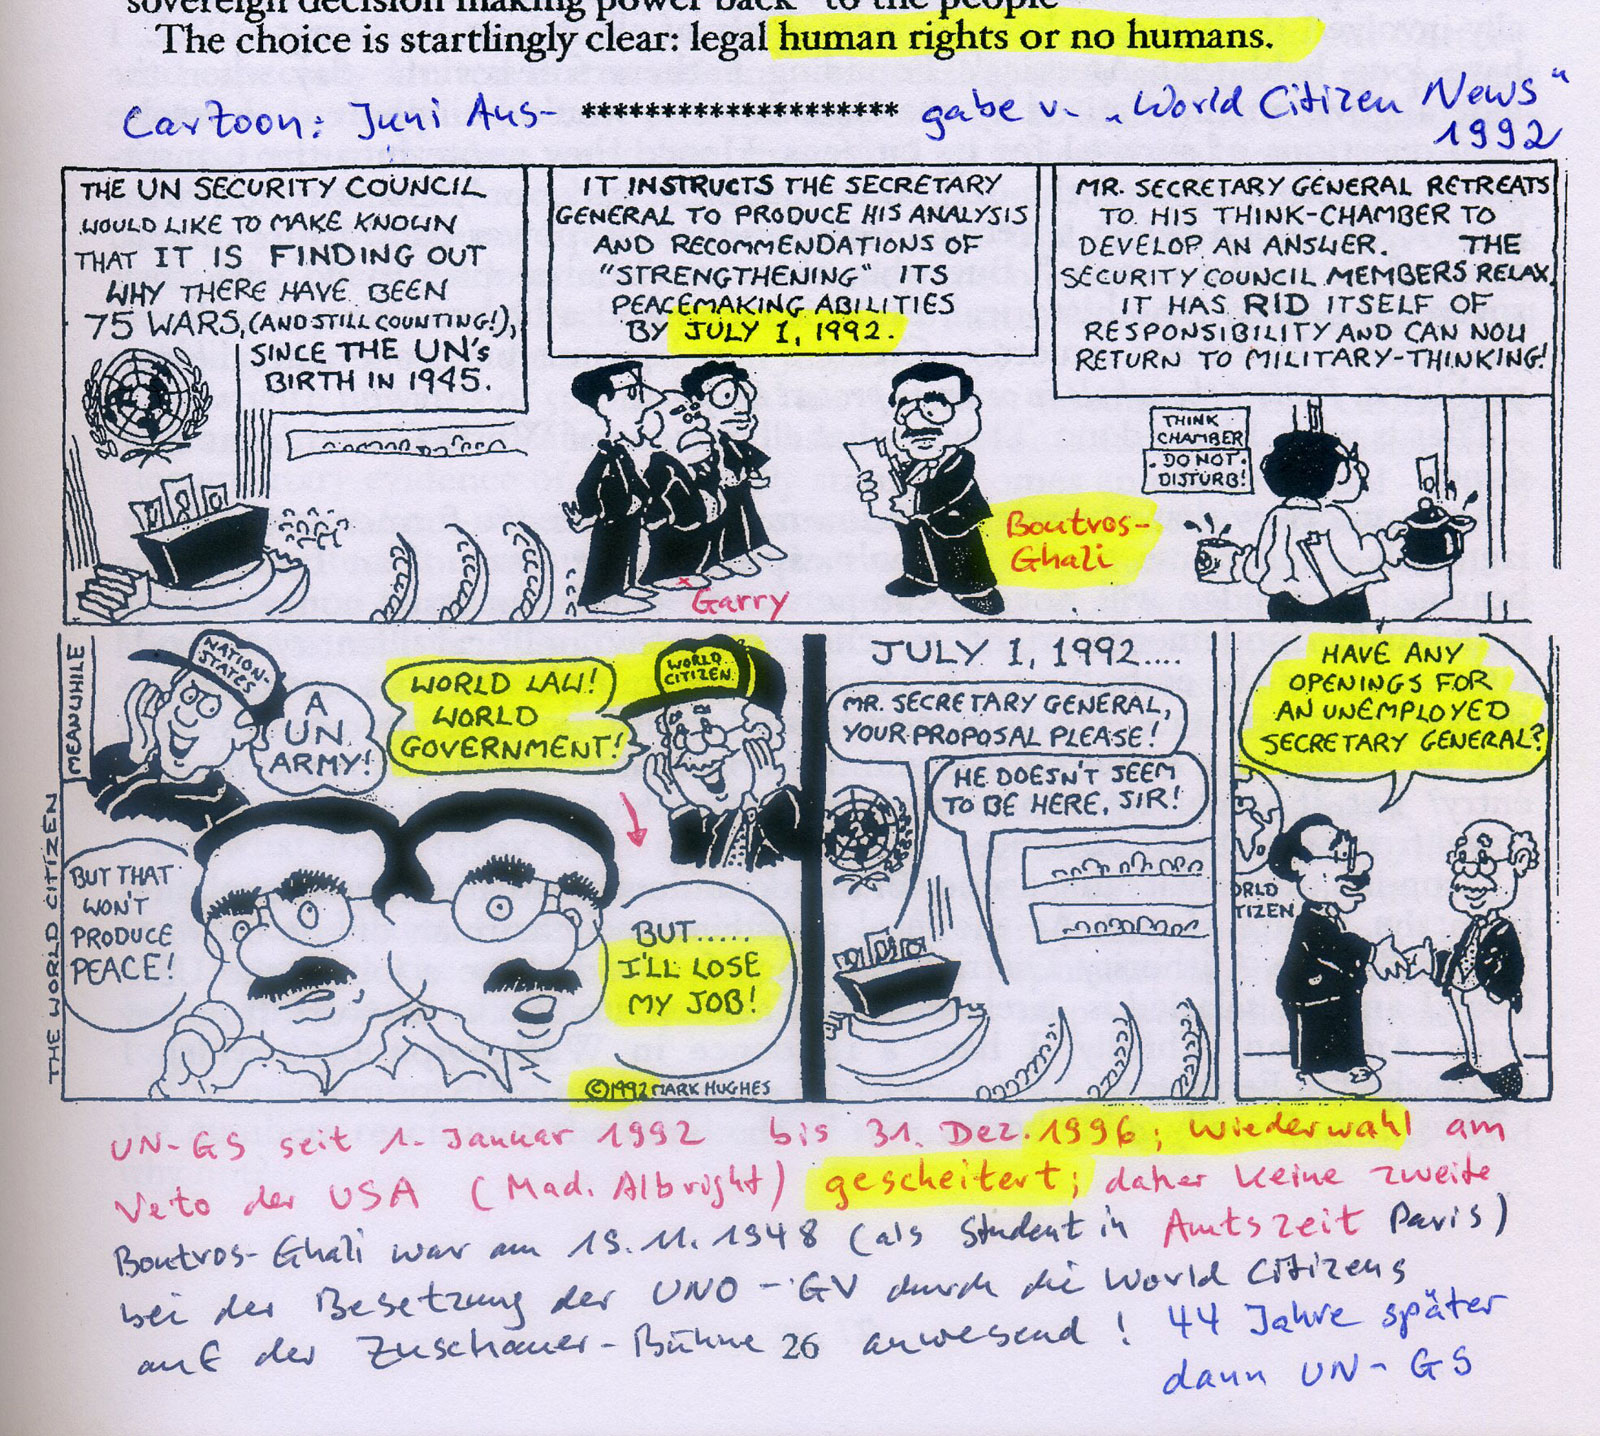 sovereign decision making power back" to the people
The choice is startlingly clear: legal human rights or no humans.
Cartoon: Juni Aus- ******************** gabe v. „World Citizen News"
1992
THE UN SECURITY COUNCIL
WOULD LIKE TO MAKE KNOWN
THAT IT IS FINDING OUT
WHY THERE HAVE BEEN
75 WARS, (AND STILL COUNTING!),
SINCE THE UN's
BIRTH IN 1945.
IT INSTRUCTS THE SECRETARY
GENERAL TO PRODUCE HIS ANALYSIS
AND RECOMMENDATIONS OF
"STRENGTHENING" ITS
PEACEMAKING ABILITIES
BY JULY 1, 1992.
Garry
Boutros-
Ghali
MR. SECRETARY GENERAL RETREATS
TO HIS THINK-CHAMBER TO
DEVELOP AN ANSWER. THE
SECURITY COUNCIL MEMBERS RELAX.
IT HAS RID ITSELF OF
RESPONSIBILITY AND CAN NOW
RETURN TO MILITARY-THINKING!
THINK
CHAMBER
. DO NOT .
DISTURB!
THE WORLD CITIZEN
MEANWHILE
NATION-
STATES
A
UN
ARMY!
WORLD LAW!
WORLD
GOVERNMENT!
WORLD
CITIZEN
BUT THAT
WON'T
PRODUCE
PEACE!
BUT.....
I'LL LOSE
MY JOB!
©1992 MARK HUGHES
JULY 1, 1992....
MR. SECRETARY GENERAL,
YOUR PROPOSAL PLEASE!
HE DOESN'T SEEM
TO BE HERE, SIR!
HAVE ANY
OPENINGS FOR
AN UNEMPLOYED
SECRETARY GENERAL?
ORLD
TIZEN
UN-GS seit 1. Januar 1992 bis 31. Dez. 1996; Wiederwahl am
Veto der USA (Mad. Albright) gescheitert; daher keine zweite
Boutros-Ghali war am 19.11.1948 (als Student in Amtszeit Paris)
bei der Besetzung der UNO-GV durch die World Citizens
auf der Zuschauer-Bühne 26 anwesend! 44 Jahre später
dann UN-GS